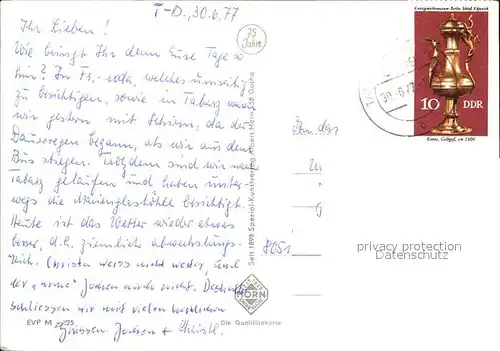 T-D., 30.6.77
Ihr Lieben!
Wie bringt Ihr denn Eure Tage so
hin? In Fr.-roda, welches unseitig
zu besichtigen, sowie in Tabarz waren
wir gestern mit Schirm, da der
Dauerregen begann, als wir aus dem
Bus stiegen. Trotzdem sind wir nach
Tabarz gelaufen und haben unter-
wegs die Marienglashöhle besichtigt.
Heute ist das Wetter wieder etwas
besser, d.h. ziemlich abwechslungs-
reich. Christa weiss nicht weiter, und
der "arme" Jochen auch nicht. Deshalb
schliessen wir mit vielen herzlichen
Grüssen Jochen + Christl.
EVP M 0,25
75
Jahre
Seit 1898 Spezial-Kunstverlag Albert Horn, 58 Gotha
HORN
Die Qualitätskarte
An das
8051
privacy protection
Datenschutz
Kunstgewerbemuseum Berlin Schloß Köpenick
10 DDR
Kanne, Goldtopf, um 1500
30.-6.77